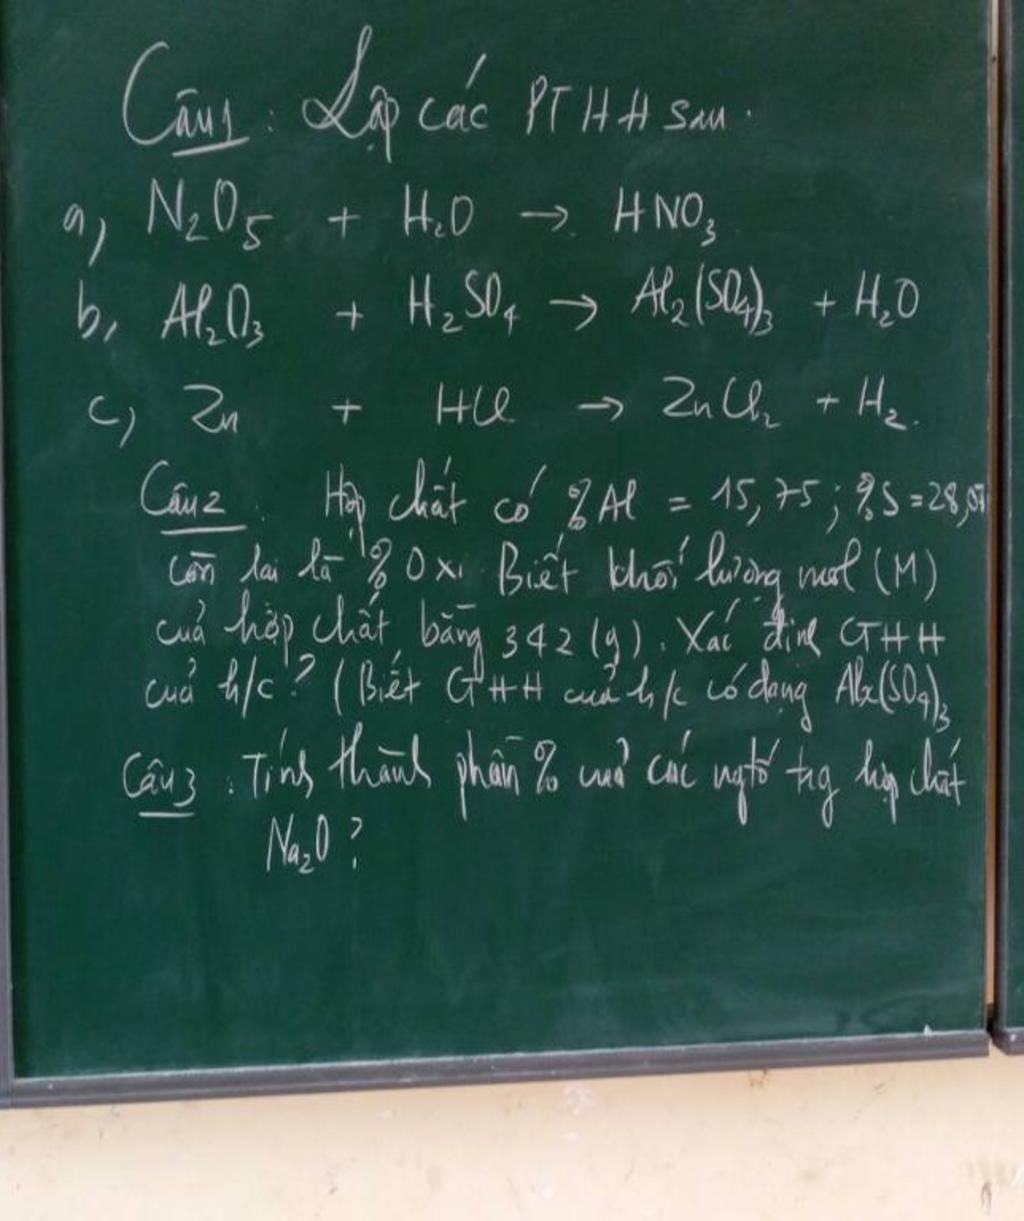 Câu 1: Lập các PTHH sau.
a, N₂O₅ + H₂O → HNO₃
b, Al₂O₃ + H₂SO₄ → Al₂(SO₄)₃ + H₂O
c, Zn + HCl → ZnCl₂ + H₂.
Câu 2. Hợp chất có %Al = 15,75; %S = 28,07
còn lại là %Oxi. Biết khối lượng mol (M)
của hợp chất bằng 342 (g). Xác định CTHH
của h/c? (Biết CTHH của h/c có dạng Alx(SO₄)₃
Câu 3: Tính thành phần % của các ngtố trg hợp chất
Na₂O?